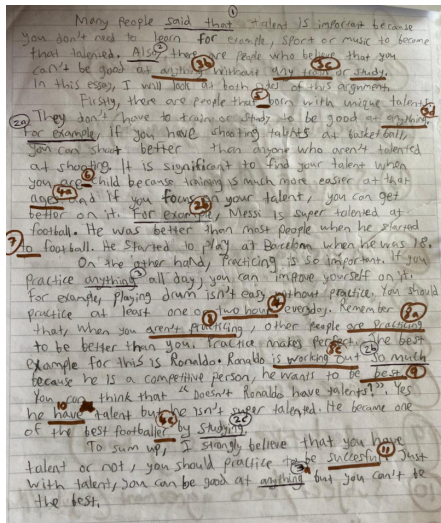 Many people said that talent is important because
you don't need to learn for example, sport or music to become
that talented. Also, there are people who believe that you
can't be good at anything without any train or study.
In this essay, I will look at both sides of this argument.
Firstly, there are people that born with unique talents.
They don't have to train or study to be good at anything.
For example, If you have shooting talents at basketball,
you can shoot better than anyone who aren't talented
at shooting. It is significant to find your talent when
you are child because training is much more easier at that
ages. And if you focus on your talent, you can get
better on it. For example, Messi is super talented at
football. He was better than most people when he started
to football. He started to play at Barcelona when he was 18.
On the other hand, Practicing is so important. If you
Practice anything all day, you can improve yourself on it.
For example, playing drum isn't easy without practice. You should
practice at least one or two hour everyday. Remember
that, when you aren't practicing, other people are practicing
to be better than you. Practice makes perfect. The best
example for this is Ronaldo. Ronaldo is working out so much
because he is a competitive person, he wants to be best.
You can think that "doesn't Ronaldo have talents?". Yes
he have talent but he isn't super talented. He became one
of the best footballer by studying.
To sum up, I strongly believe that you have
talent or not, you should practice to be succesful. Just
with talent, you can be good at anything but you can't be
the best.